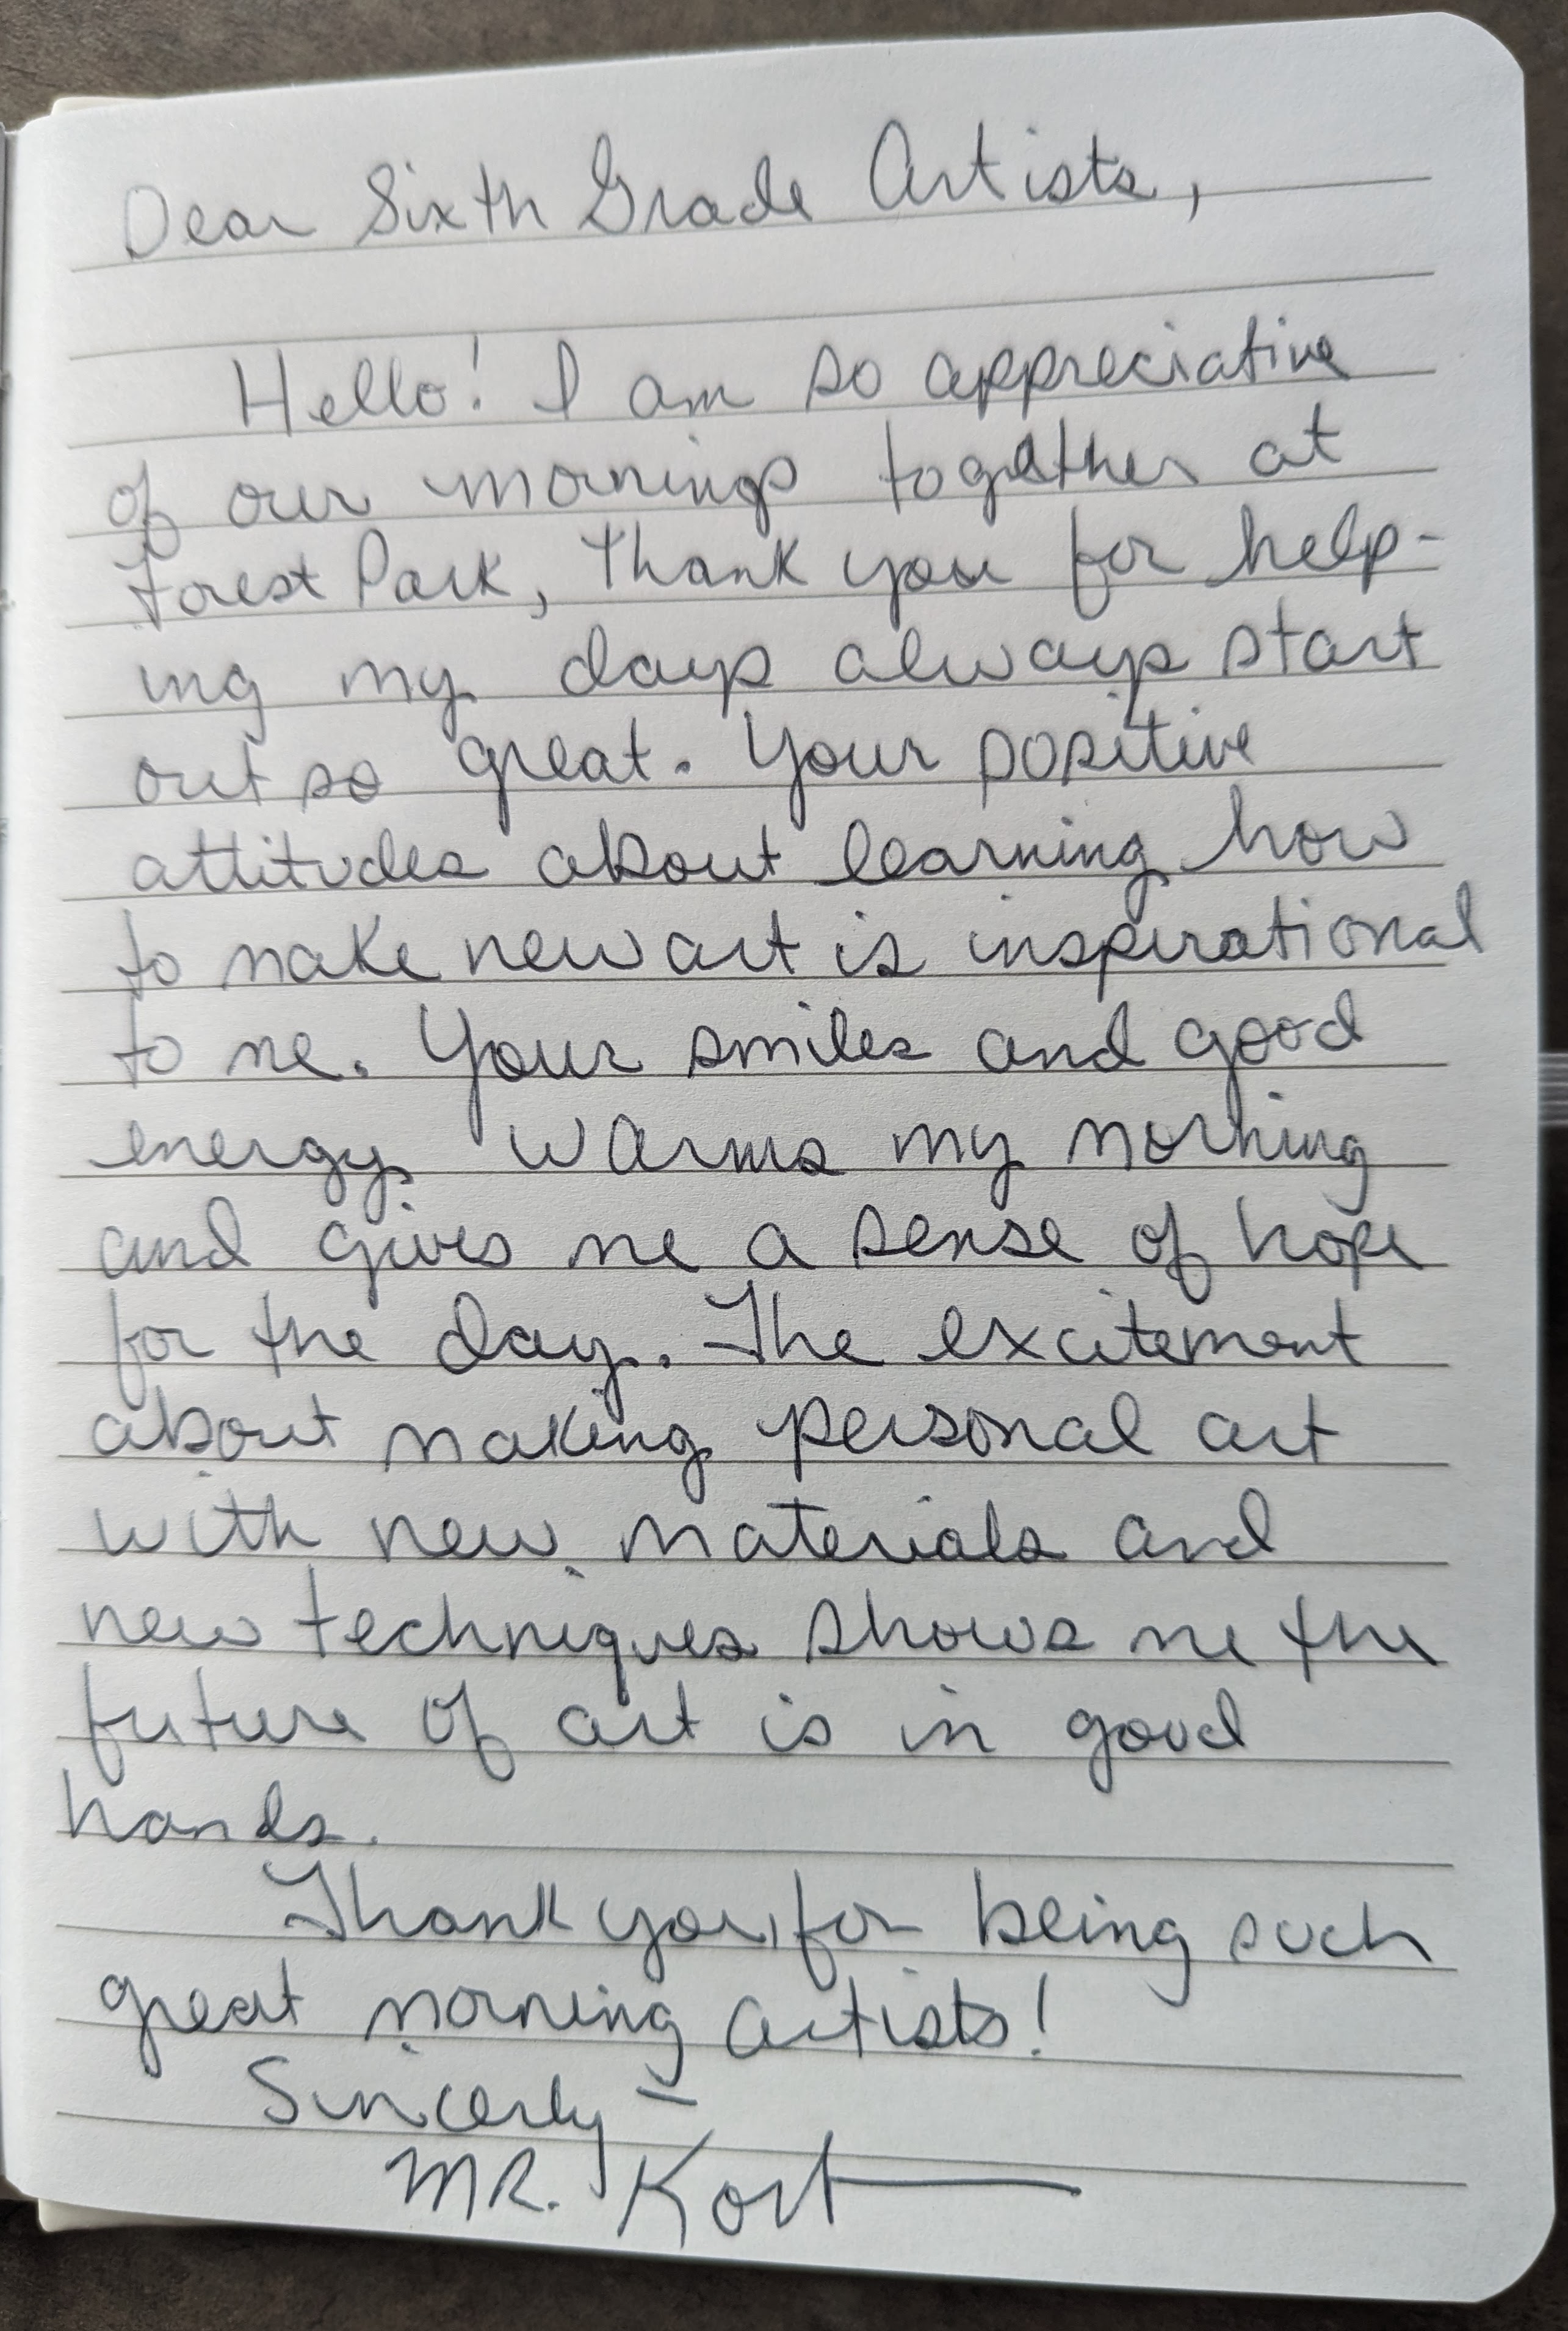 Dear Sixth Grade Artists,
Hello! I am so appreciative
of our mornings together at
Forest Park, Thank you for help-
ing my days always start
out so great. Your positive
attitudes about learning how
to make new art is inspirational
to me. Your smiles and good
energy warms my morning
and gives me a sense of hope
for the day. The excitement
about making personal art
with new materials and
new techniques shows me the
future of art is in good
hands.
Thank you, for being such
great morning artists!
Sincerly -
MR. Kort